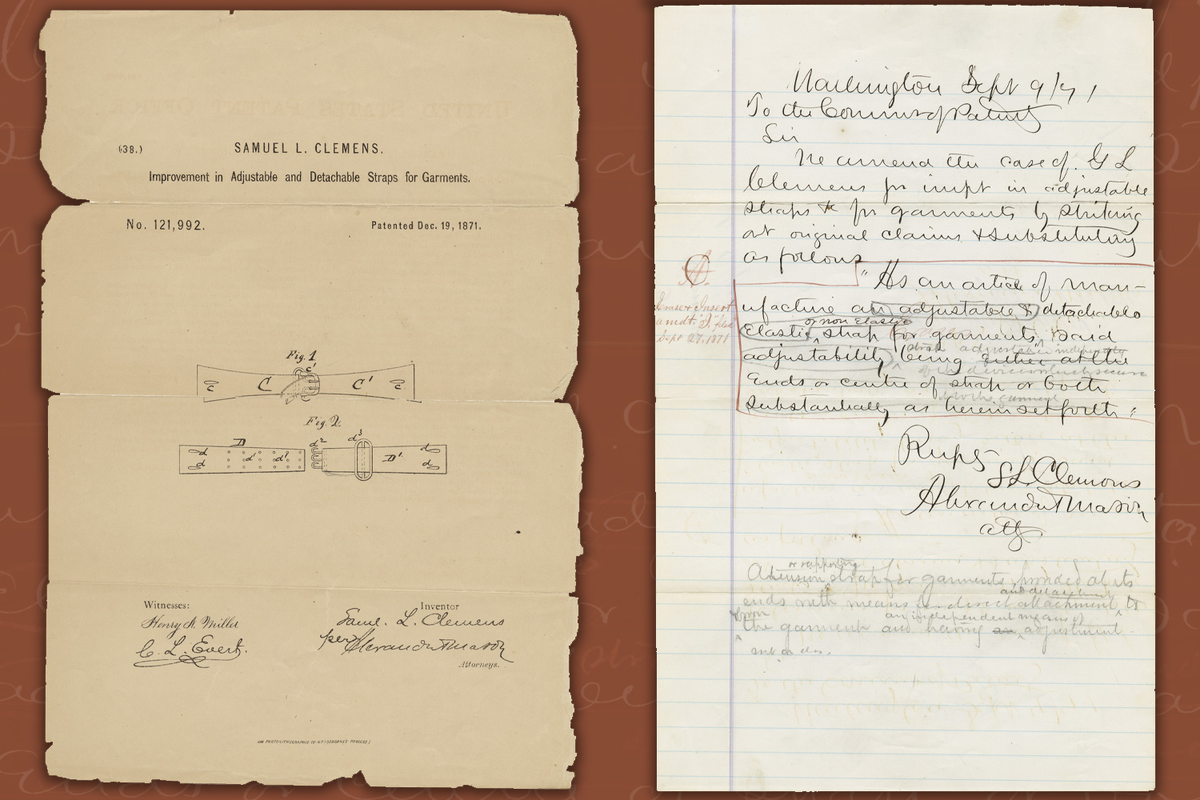 (38.)
SAMUEL L. CLEMENS.
Improvement in Adjustable and Detachable Straps for Garments.
No. 121,992.
Patented Dec. 19, 1871.
Fig. 1
c C c' C' c
Fig. 2.
D d² d³
d d' d' D' d
d d
Witnesses:
Henry N Miller
C. L. Evert.
Inventor
Saml. L. Clemens
per Alexander & Mason
Attorneys.
Washington Sept 9/71
To the Commr of Patents
Sir
We amend the case of S L
Clemens for impt in adjustable
straps &c for garments by striking
out original claims & substituting
as follows
"As an article of man-
ufacture an adjustable & detachable
or non Elastic
Elastic strap for garments, said
adjustability being either at the
ends or centre of strap or both
substantially as herein set forth:
Sept 27, 1871
Respy
S L Clemens
Alexander & Mason
attys
or supporting
strap for garments provided at its
and detachment
ends with means for direct attachment to
from
an independent means of
the garment and having an adjustment